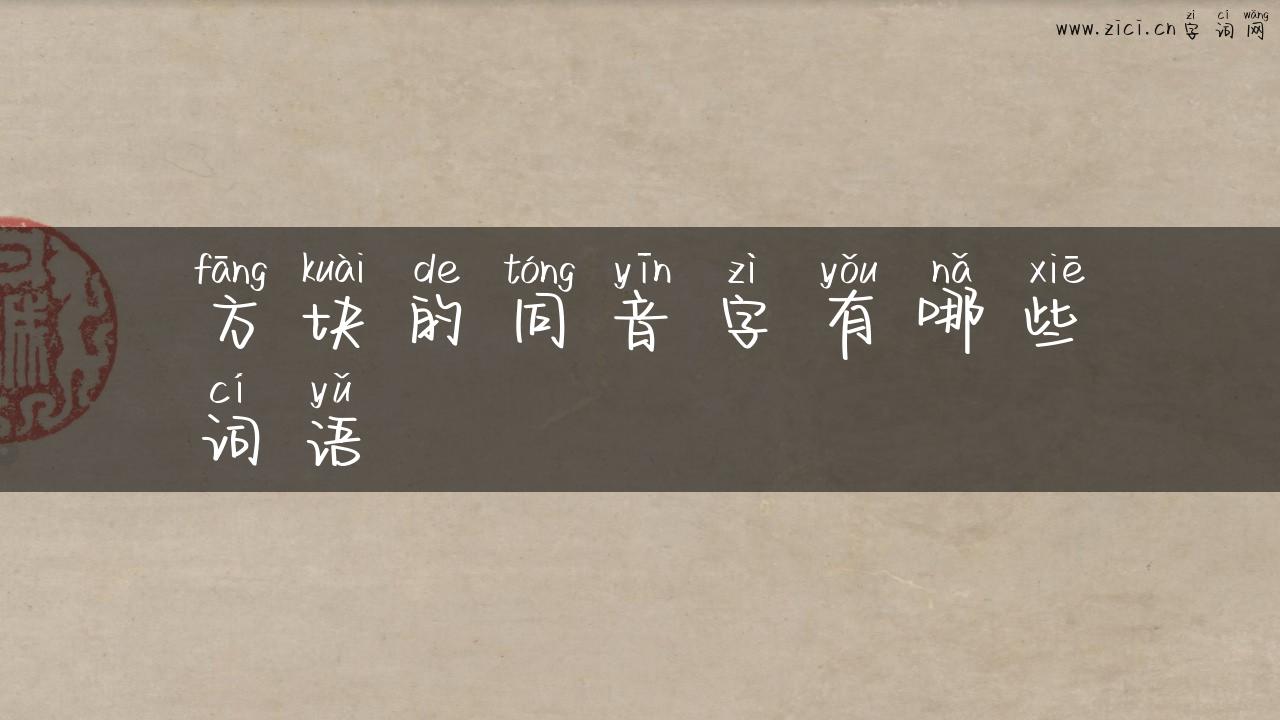 zì cí wǎng
www.zici.cn字词网
fāng kuài de tóng yīn zì yǒu nǎ xiē
方块的同音字有哪些
cí yǔ
词语